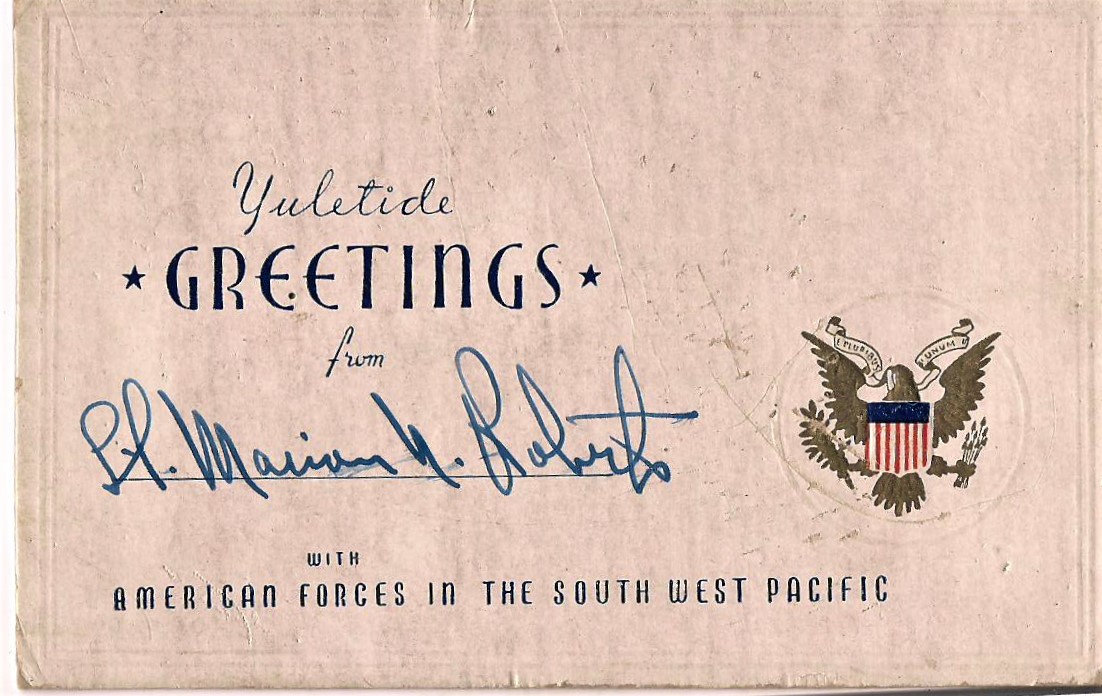 Yuletide
★ GREETINGS ★
from
Lt. Marion N. Roberts
WITH
AMERICAN FORCES IN THE SOUTH WEST PACIFIC
E PLURIBUS UNUM